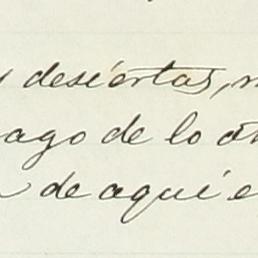 desiertas,
pago de lo
de aquí e